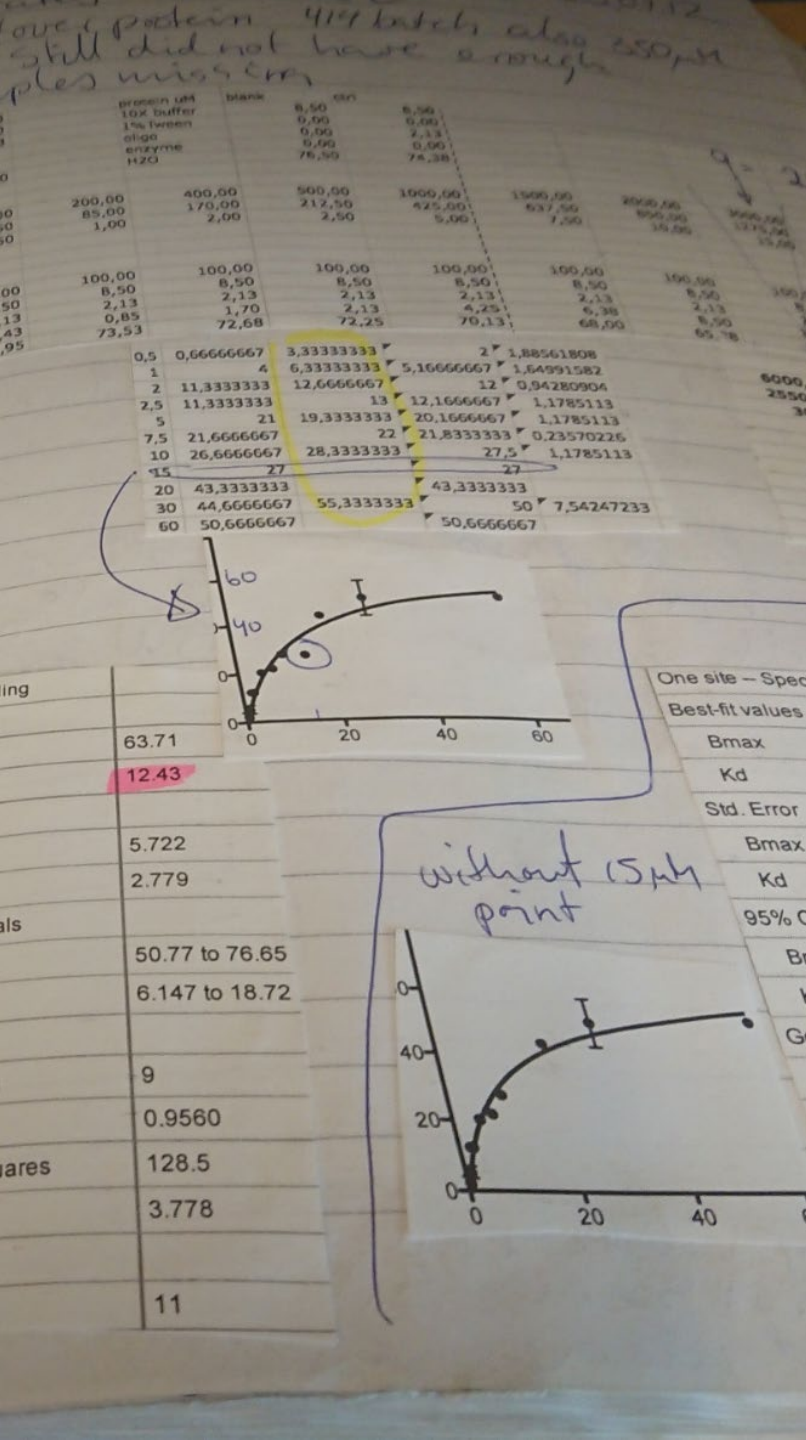 over protein 414 batch also 250 µM
still did not have enough
ples missing
protein uM blank ctrl
10x buffer 8,50 8,50
1% Tween 0,00 0,00
oligo 0,00 2,13
enzyme 0,00 0,00
H2O 76,50 74,38
200,00 400,00 500,00 1000,00 1500,00 2000,00
85,00 170,00 212,50 425,00 637,50
1,00 2,00 2,50 5,00 7,50 10,00
100,00 100,00 100,00 100,00 100,00 100,00
8,50 8,50 8,50 8,50 8,50 8,50
2,13 2,13 2,13 2,13 2,13 2,13
0,85 1,70 2,13 4,25 6,38 8,50
73,53 72,68 72,25 70,13 68,00
0,5 0,66666667 3,33333333 2 1,88561808
1 4 6,33333333 5,16666667 1,64991582
2 11,3333333 12,6666667 12 0,94280904
2,5 11,3333333 13 12,1666667 1,1785113
5 21 19,3333333 20,1666667 1,1785113
7,5 21,6666667 22 21,8333333 0,23570226
10 26,6666667 28,3333333 27,5 1,1785113
15 27 27
20 43,3333333 43,3333333
30 44,6666667 55,3333333 50 7,54247233
60 50,6666667 50,6666667
6000,
2550
60
40
0
0
0 20 40 60
ling
63.71
12.43
5.722
2.779
als
50.77 to 76.65
6.147 to 18.72
9
0.9560
uares 128.5
3.778
11
One site – Spec
Best-fit values
Bmax
Kd
Std. Error
Bmax
Kd
95% C
without 15 µM
point
0
40
20
0
0 20 40